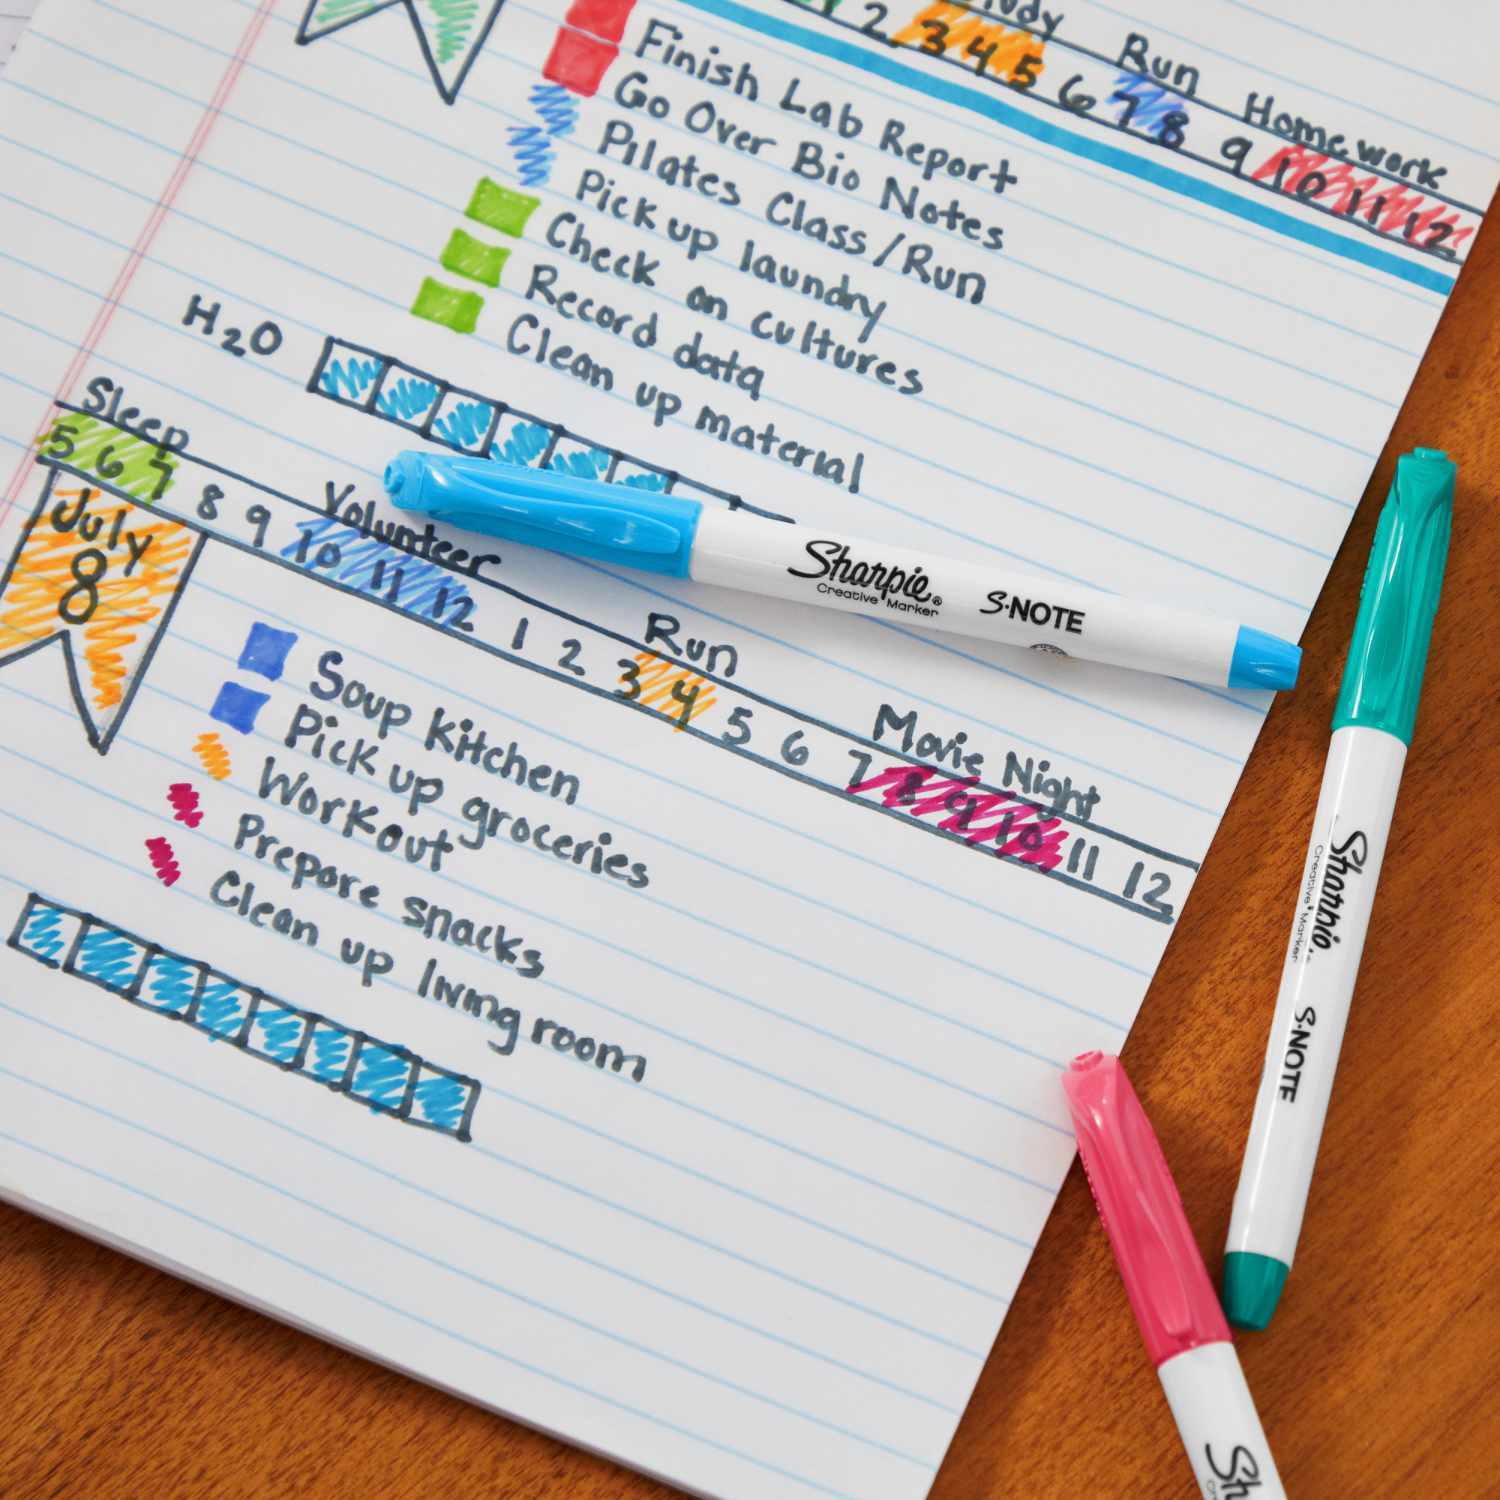 Run
Homework
2 3 4 5 6 7 8 9 10 11 12
Finish Lab Report
Go Over Bio Notes
Pilates Class/Run
Pick up laundry
Check on cultures
Record data
Clean up material
H2O
Sleep
Volunteer
Run
Movie Night
5 6 7 8 9 10 11 12 1 2 3 4 5 6 7 8 9 10 11 12
July
8
Soup Kitchen
Pick up groceries
Workout
Prepare snacks
Clean up living room
Sharpie® S·NOTE
Creative Marker
Sharpie S·NOTE
Creative Marker